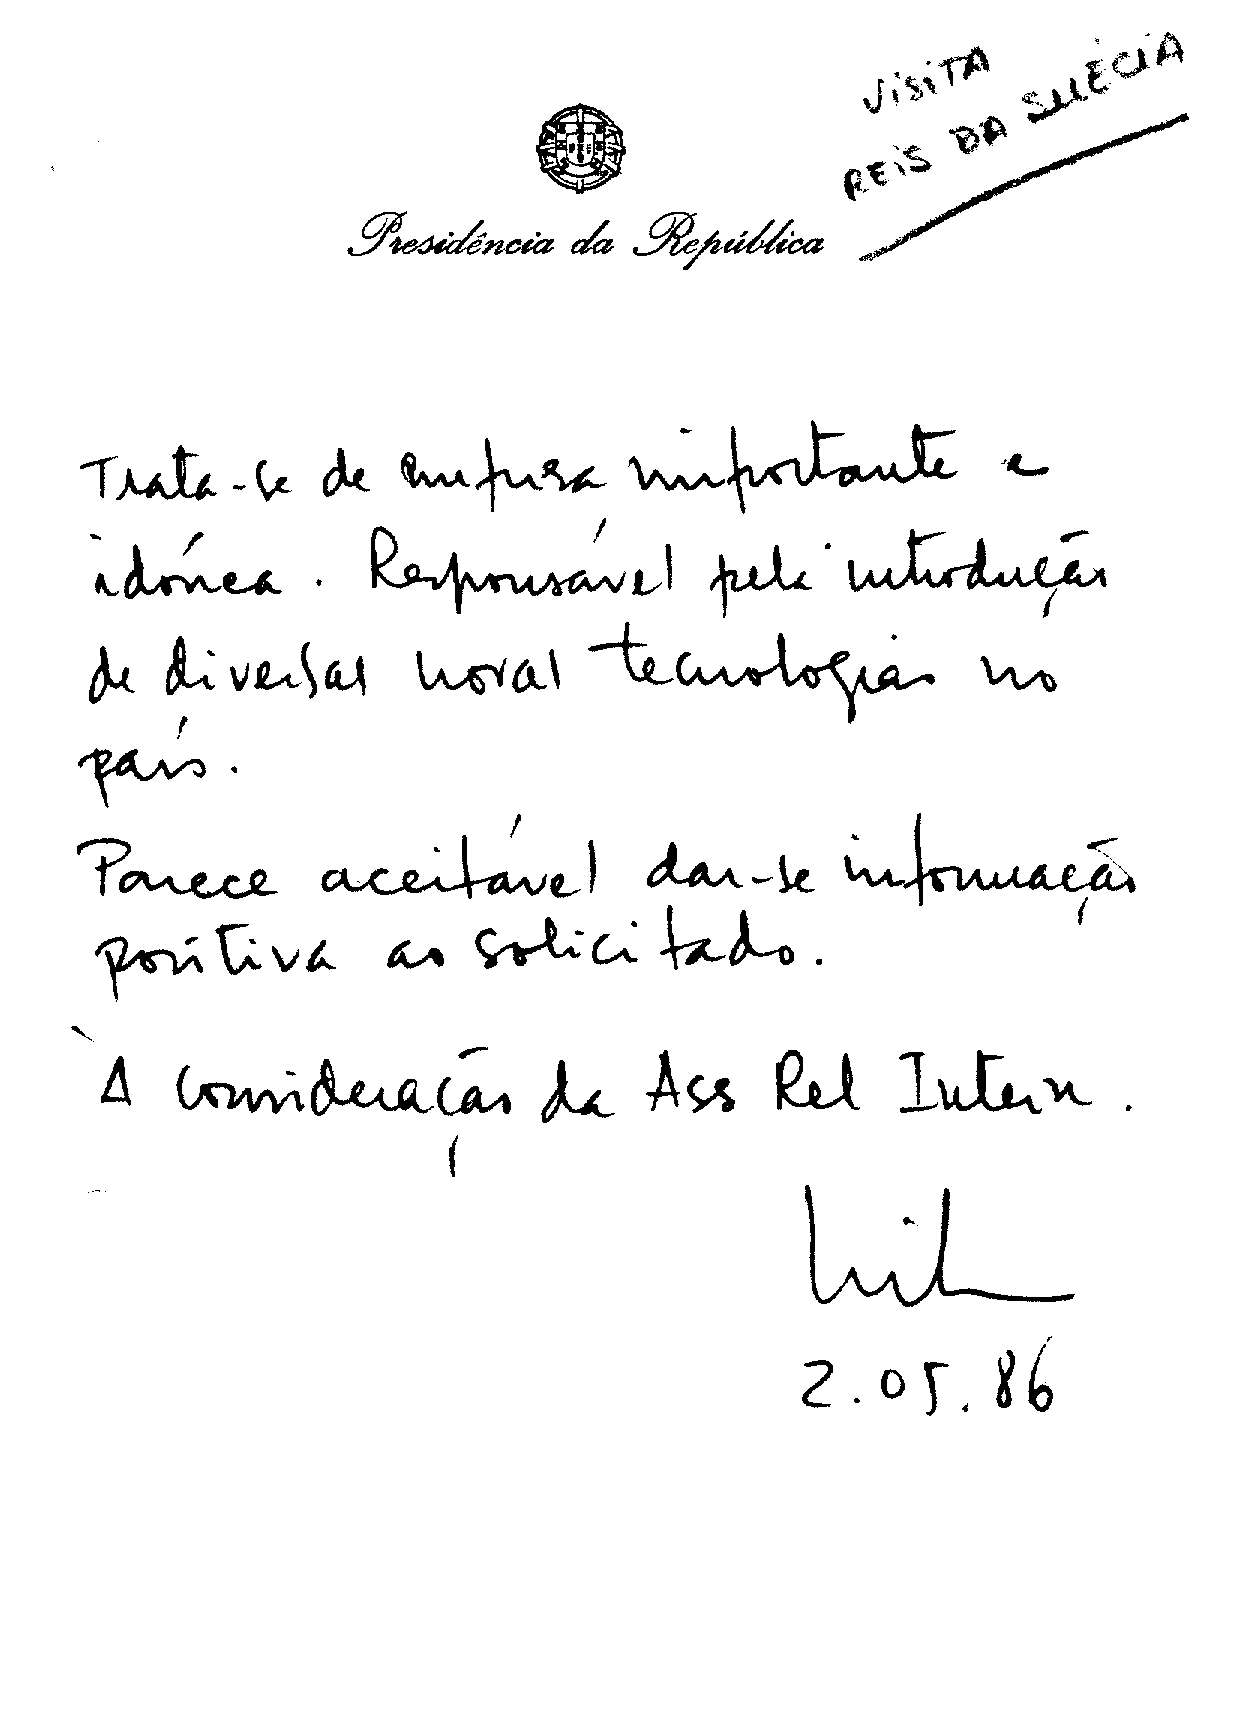 VISITA
REIS DA SUÉCIA
Presidência da República
Trata-se de empresa importante e
idónea. Responsável pela introdução
de diversas novas tecnologias no
país.
Parece aceitável dar-se informação
positiva ao solicitado.
À Consideração da Ass Rel Intern.
2.05.86